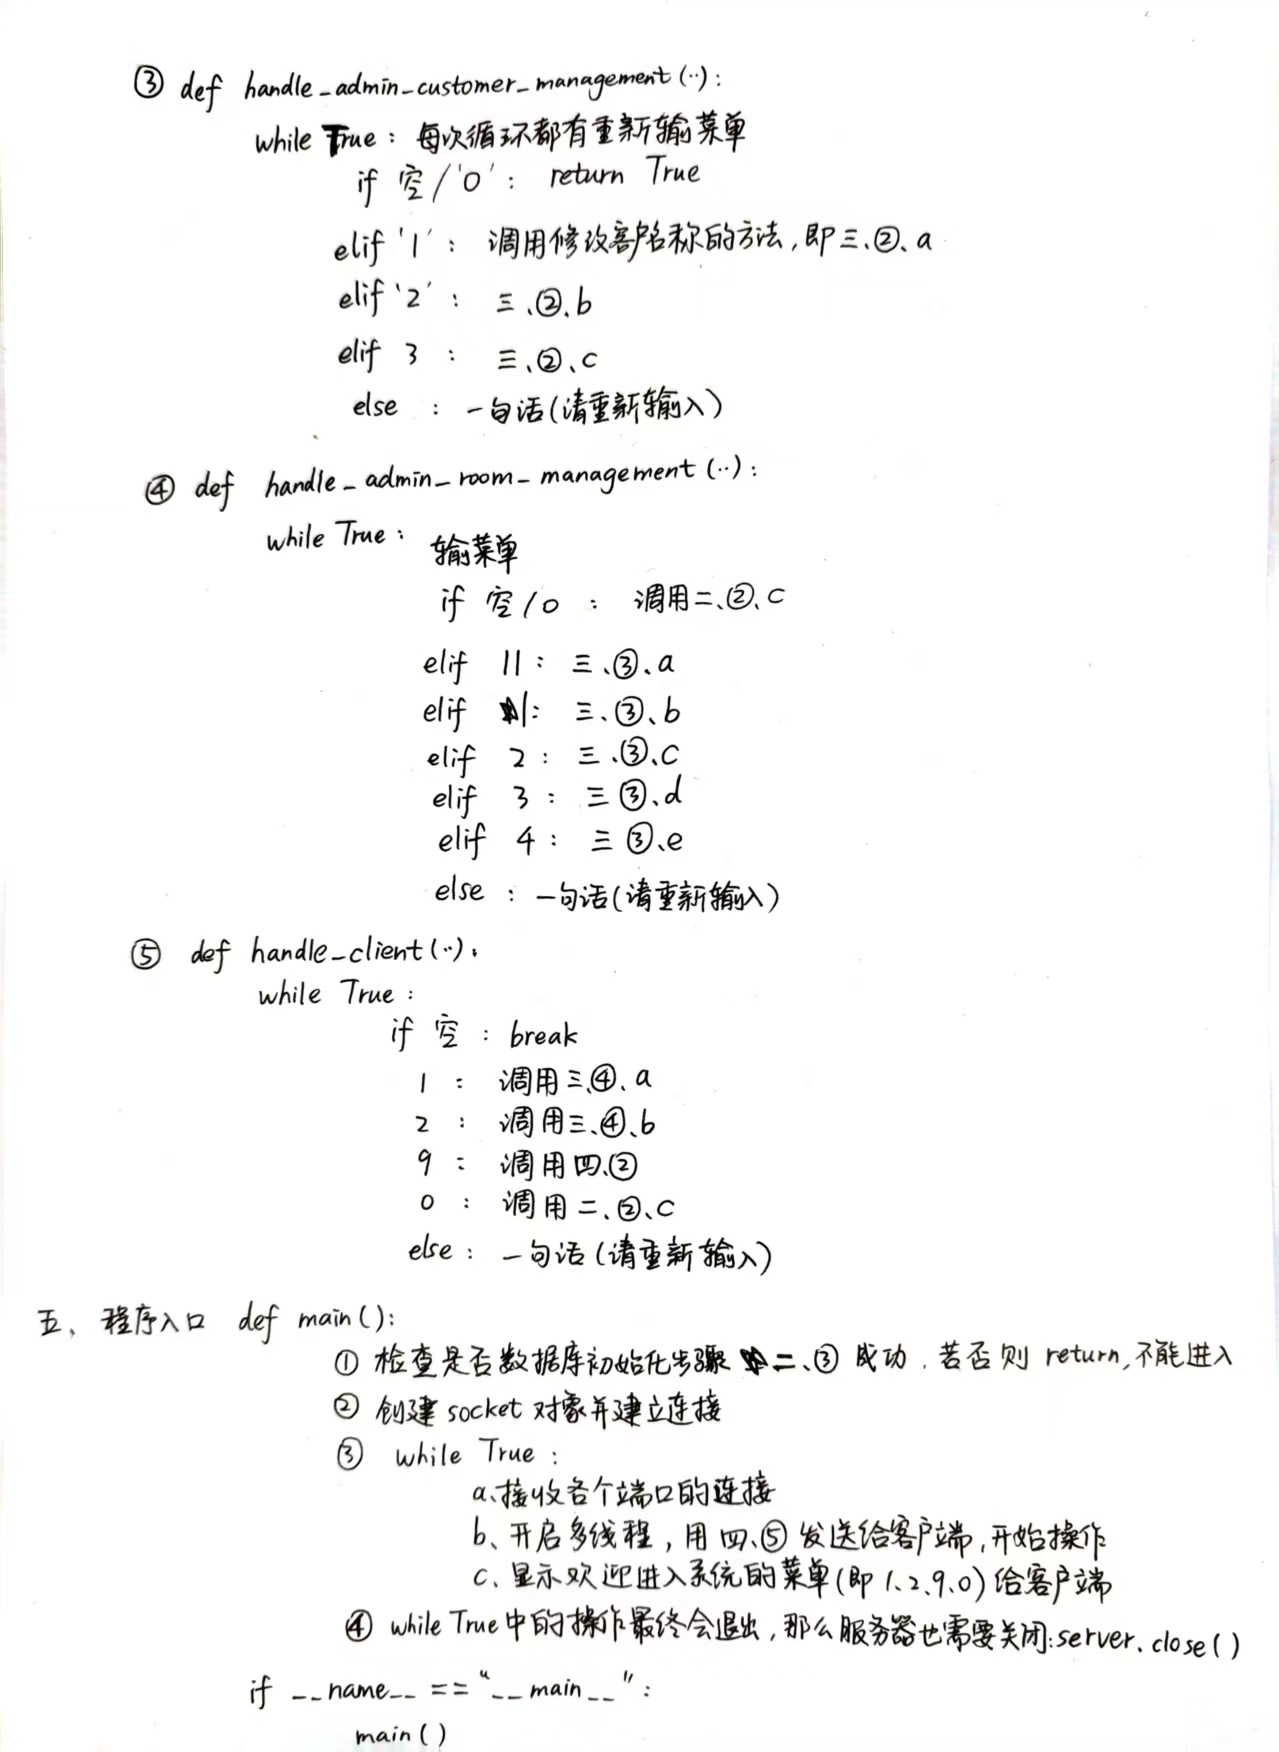 ③ def handle_admin_customer_management(··):
while True: 每次循环都有重新输菜单
if 空/'0': return True
elif '1': 调用修改客户名称的方法,即三、②、a
elif '2': 三、②、b
elif 3: 三、②、c
else: 一句话(请重新输入)
④ def handle_admin_room_management(··):
while True: 输菜单
if 空/0: 调用二、②、c
elif 11: 三、③、a
elif 1: 三、③、b
elif 2: 三、③、c
elif 3: 三③、d
elif 4: 三③、e
else: 一句话(请重新输入)
⑤ def handle_client(··):
while True:
if 空: break
1: 调用三、④、a
2: 调用三、④、b
9: 调用四、②
0: 调用二、②、c
else: 一句话(请重新输入)
五、程序入口 def main():
① 检查是否数据库初始化步骤二、③成功,若否则return,不能进入
② 创建socket对象并建立连接
③ while True:
a、接收各个端口的连接
b、开启多线程,用四、⑤发送给客户端,开始操作
c、显示欢迎进入系统的菜单(即1、2、9、0)给客户端
④ while True中的操作最终会退出,那么服务器也需要关闭:server.close()
if __name__ == "__main__":
main()